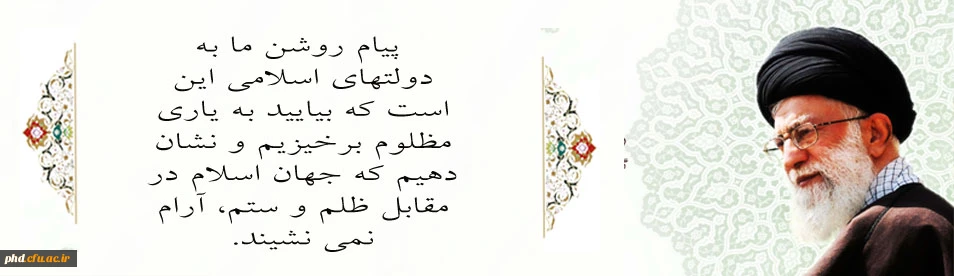 پیام روشن ما به
دولتهای اسلامی این
است که بیایید به یاری
مظلوم برخیزیم و نشان
دهیم که جهان اسلام در
مقابل ظلم و ستم، آرام
نمی نشیند.
phd.cfu.ac.ir